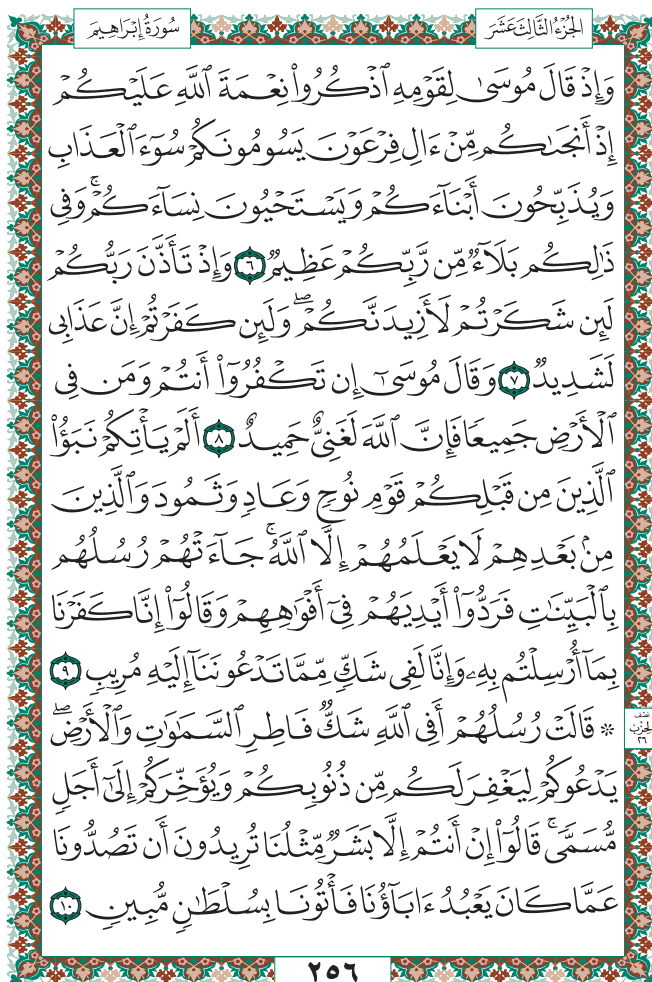 سُورَةُ إِبْرَاهِيم
الجُزْءُ الثَّالِثَ عَشَرَ
وَإِذْ قَالَ مُوسَىٰ لِقَوْمِهِ ٱذْكُرُوا۟ نِعْمَةَ ٱللَّهِ عَلَيْكُمْ
إِذْ أَنجَىٰكُم مِّنْ ءَالِ فِرْعَوْنَ يَسُومُونَكُمْ سُوٓءَ ٱلْعَذَابِ
وَيُذَبِّحُونَ أَبْنَآءَكُمْ وَيَسْتَحْيُونَ نِسَآءَكُمْ ۚ وَفِى
ذَٰلِكُم بَلَآءٌ مِّن رَّبِّكُمْ عَظِيمٌ ٦ وَإِذْ تَأَذَّنَ رَبُّكُمْ
لَئِن شَكَرْتُمْ لَأَزِيدَنَّكُمْ ۖ وَلَئِن كَفَرْتُمْ إِنَّ عَذَابِى
لَشَدِيدٌ ٧ وَقَالَ مُوسَىٰٓ إِن تَكْفُرُوٓا۟ أَنتُمْ وَمَن فِى
ٱلْأَرْضِ جَمِيعًا فَإِنَّ ٱللَّهَ لَغَنِىٌّ حَمِيدٌ ٨ أَلَمْ يَأْتِكُمْ نَبَؤُا۟
ٱلَّذِينَ مِن قَبْلِكُمْ قَوْمِ نُوحٍ وَعَادٍ وَثَمُودَ وَٱلَّذِينَ
مِنۢ بَعْدِهِمْ لَا يَعْلَمُهُمْ إِلَّا ٱللَّهُ ۚ جَآءَتْهُمْ رُسُلُهُم
بِٱلْبَيِّنَٰتِ فَرَدُّوٓا۟ أَيْدِيَهُمْ فِىٓ أَفْوَٰهِهِمْ وَقَالُوٓا۟ إِنَّا كَفَرْنَا
بِمَآ أُرْسِلْتُم بِهِۦ وَإِنَّا لَفِى شَكٍّ مِّمَّا تَدْعُونَنَآ إِلَيْهِ مُرِيبٍ ٩
۞ قَالَتْ رُسُلُهُمْ أَفِى ٱللَّهِ شَكٌّ فَاطِرِ ٱلسَّمَٰوَٰتِ وَٱلْأَرْضِ ۖ
نصف
الحزب
٢٦
يَدْعُوكُمْ لِيَغْفِرَ لَكُم مِّن ذُنُوبِكُمْ وَيُؤَخِّرَكُمْ إِلَىٰٓ أَجَلٍ
مُّسَمًّى ۚ قَالُوٓا۟ إِنْ أَنتُمْ إِلَّا بَشَرٌ مِّثْلُنَا تُرِيدُونَ أَن تَصُدُّونَا
عَمَّا كَانَ يَعْبُدُ ءَابَآؤُنَا فَأْتُونَا بِسُلْطَٰنٍ مُّبِينٍ ١٠
٢٥٦